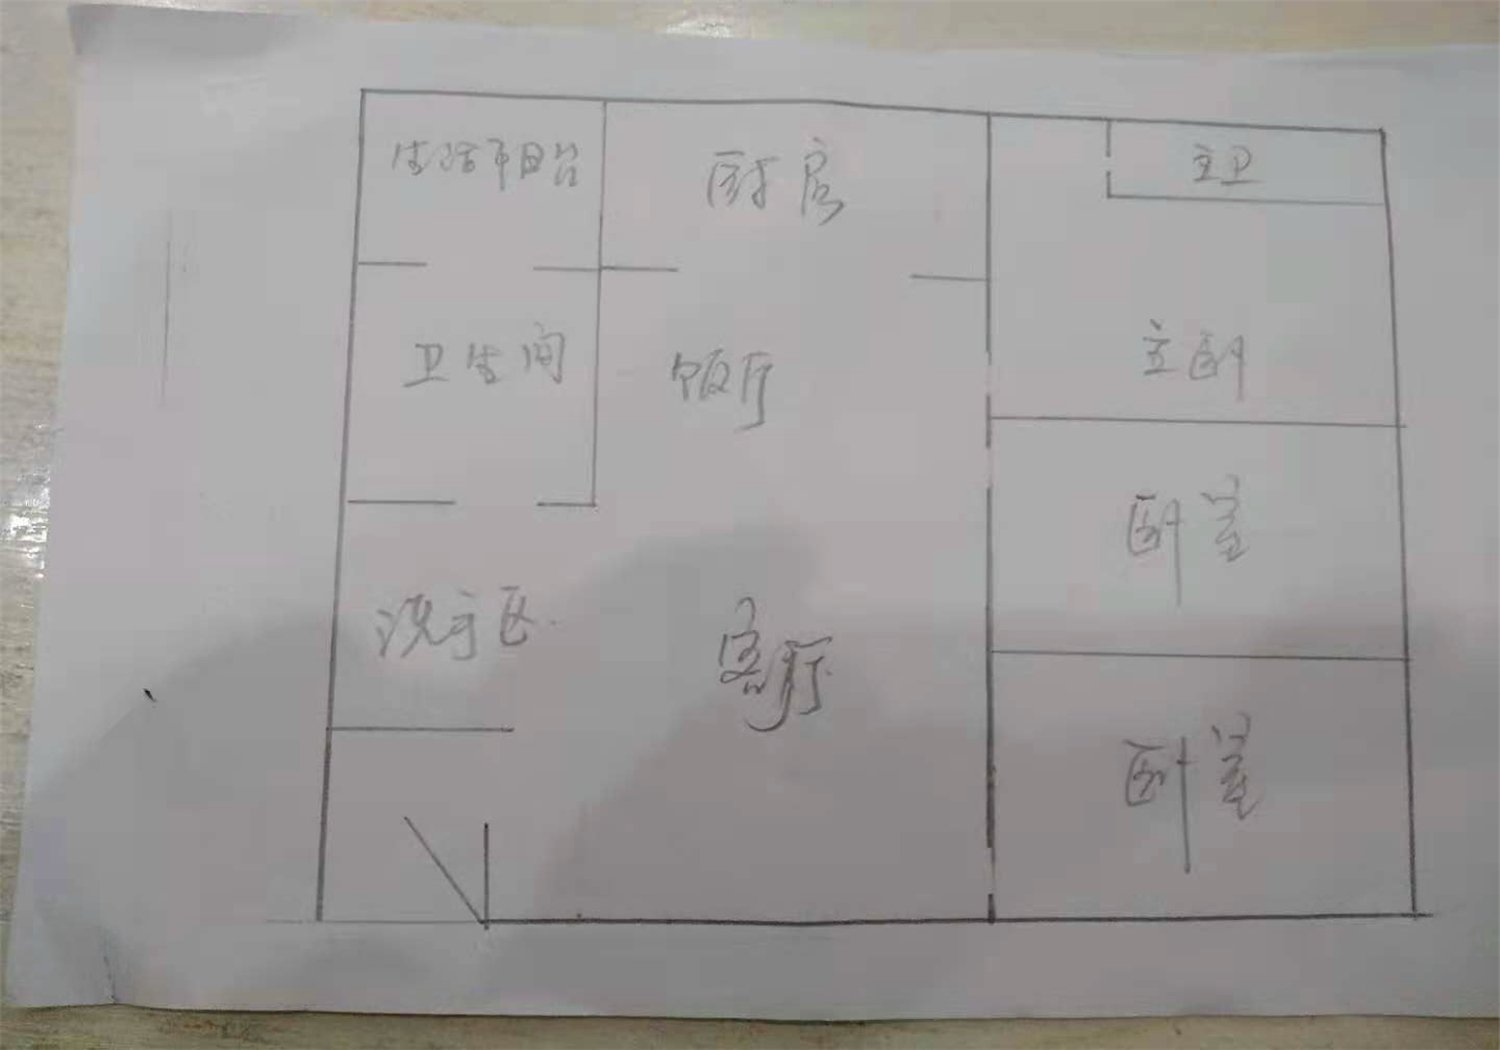 生活阳台
厨房
主卫
卫生间
饭厅
主卧
卧室
洗手区
客厅
卧室